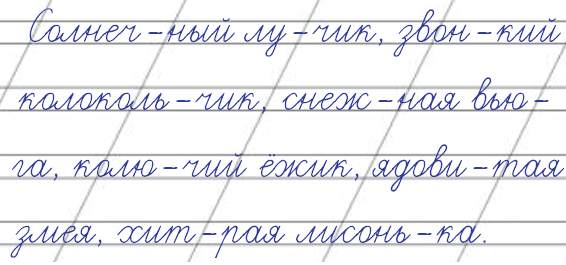 Солнеч-ный лу-чик, звон-кий
колоколь-чик, снеж-ная вью-
га, колю-чий ёжик, ядови-тая
змея, хит-рая лисонь-ка.